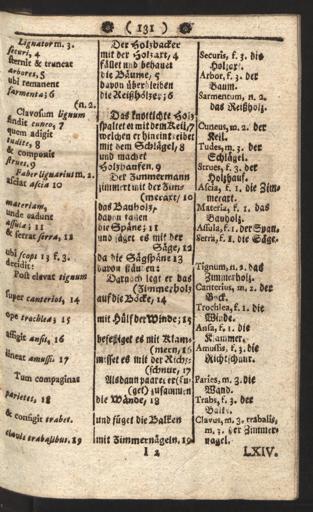 ( 131 )
Lignator m. 3.
securi, 4
sternit & truncat
arbores, 5
ubi remanent
sarmenta; 6
(n. 2.
Clavosum lignum
findit cuneo, 7
quem adigit
tudite, 8
& componit
strues. 9
Faber lignarius m. 2.
asciat ascia 10
materiam,
unde cadunt
assulæ; 11
& serrat serra, 12
ubi scops 13 f. 3.
decidit:
Post elevat tignum
super canterios, 14
ope trochleæ; 15
affigit ansis, 16
lineat amussi. 17
Tum compaginat
parietes, 18
& configit trabes.
clavis trabalibus. 19
Der Holzhacker
mit der Holzart, 4
fället und behauet
die Bäume, 5
davon überbleiben
die Reißhölze; 6
Das knottichte Holz
spaltet er mit dem Keil, 7
welchen er hinein treibet
mit dem Schlägel, 8
und machet
Holzhauffen. 9
Der Zimmermann
zimmert mit der Zim-
(meraxt) 10
das Bauholz,
davon fallen
die Späne; 11
und säget es mit der
Säge, 12
da die Sägspäne 13
davon stäuben:
Darnach legt er das
(Zimmerholz
auf die Böcke, 14
mit Hülf der Winde; 15
befestiget es mit Klam-
(mern, 16
misset es mit der Richt-
(schnur, 17
Alsdann paaret er (fü-
(get) zusammen
die Wände, 18
und füget die Balken
mit Zimmernägeln. 19
Securis, f. 3. die
Holzaxt.
Arbor, f. 3. der
Baum.
Sarmentum, n. 2.
das Reißholz.
Cuneus, m. 2. der
Keil.
Tudes, m. 3. der
Schlägel.
Strues, f. 3. der
Holzhauf.
Ascia, f. 1. die Zim-
meraxt.
Materia, f. 1. das
Bauholz.
Assula, f. 1. der Span.
Serra, f. 1. die Säge.
Tignum, n. 2. das
Zimmerholz.
Canterius, m. 2. der
Bock.
Trochlea, f. 1. die
Winde.
Ansa, f. 1. die
Klammer.
Amussis, f. 3. die
Richtschnur.
Paries, m. 3. die
Wand.
Trabs, f. 3. der
Balke.
Clavus, m. 3. trabalis,
m. 3. der Zimmer-
nagel.
I 2
LXIV.